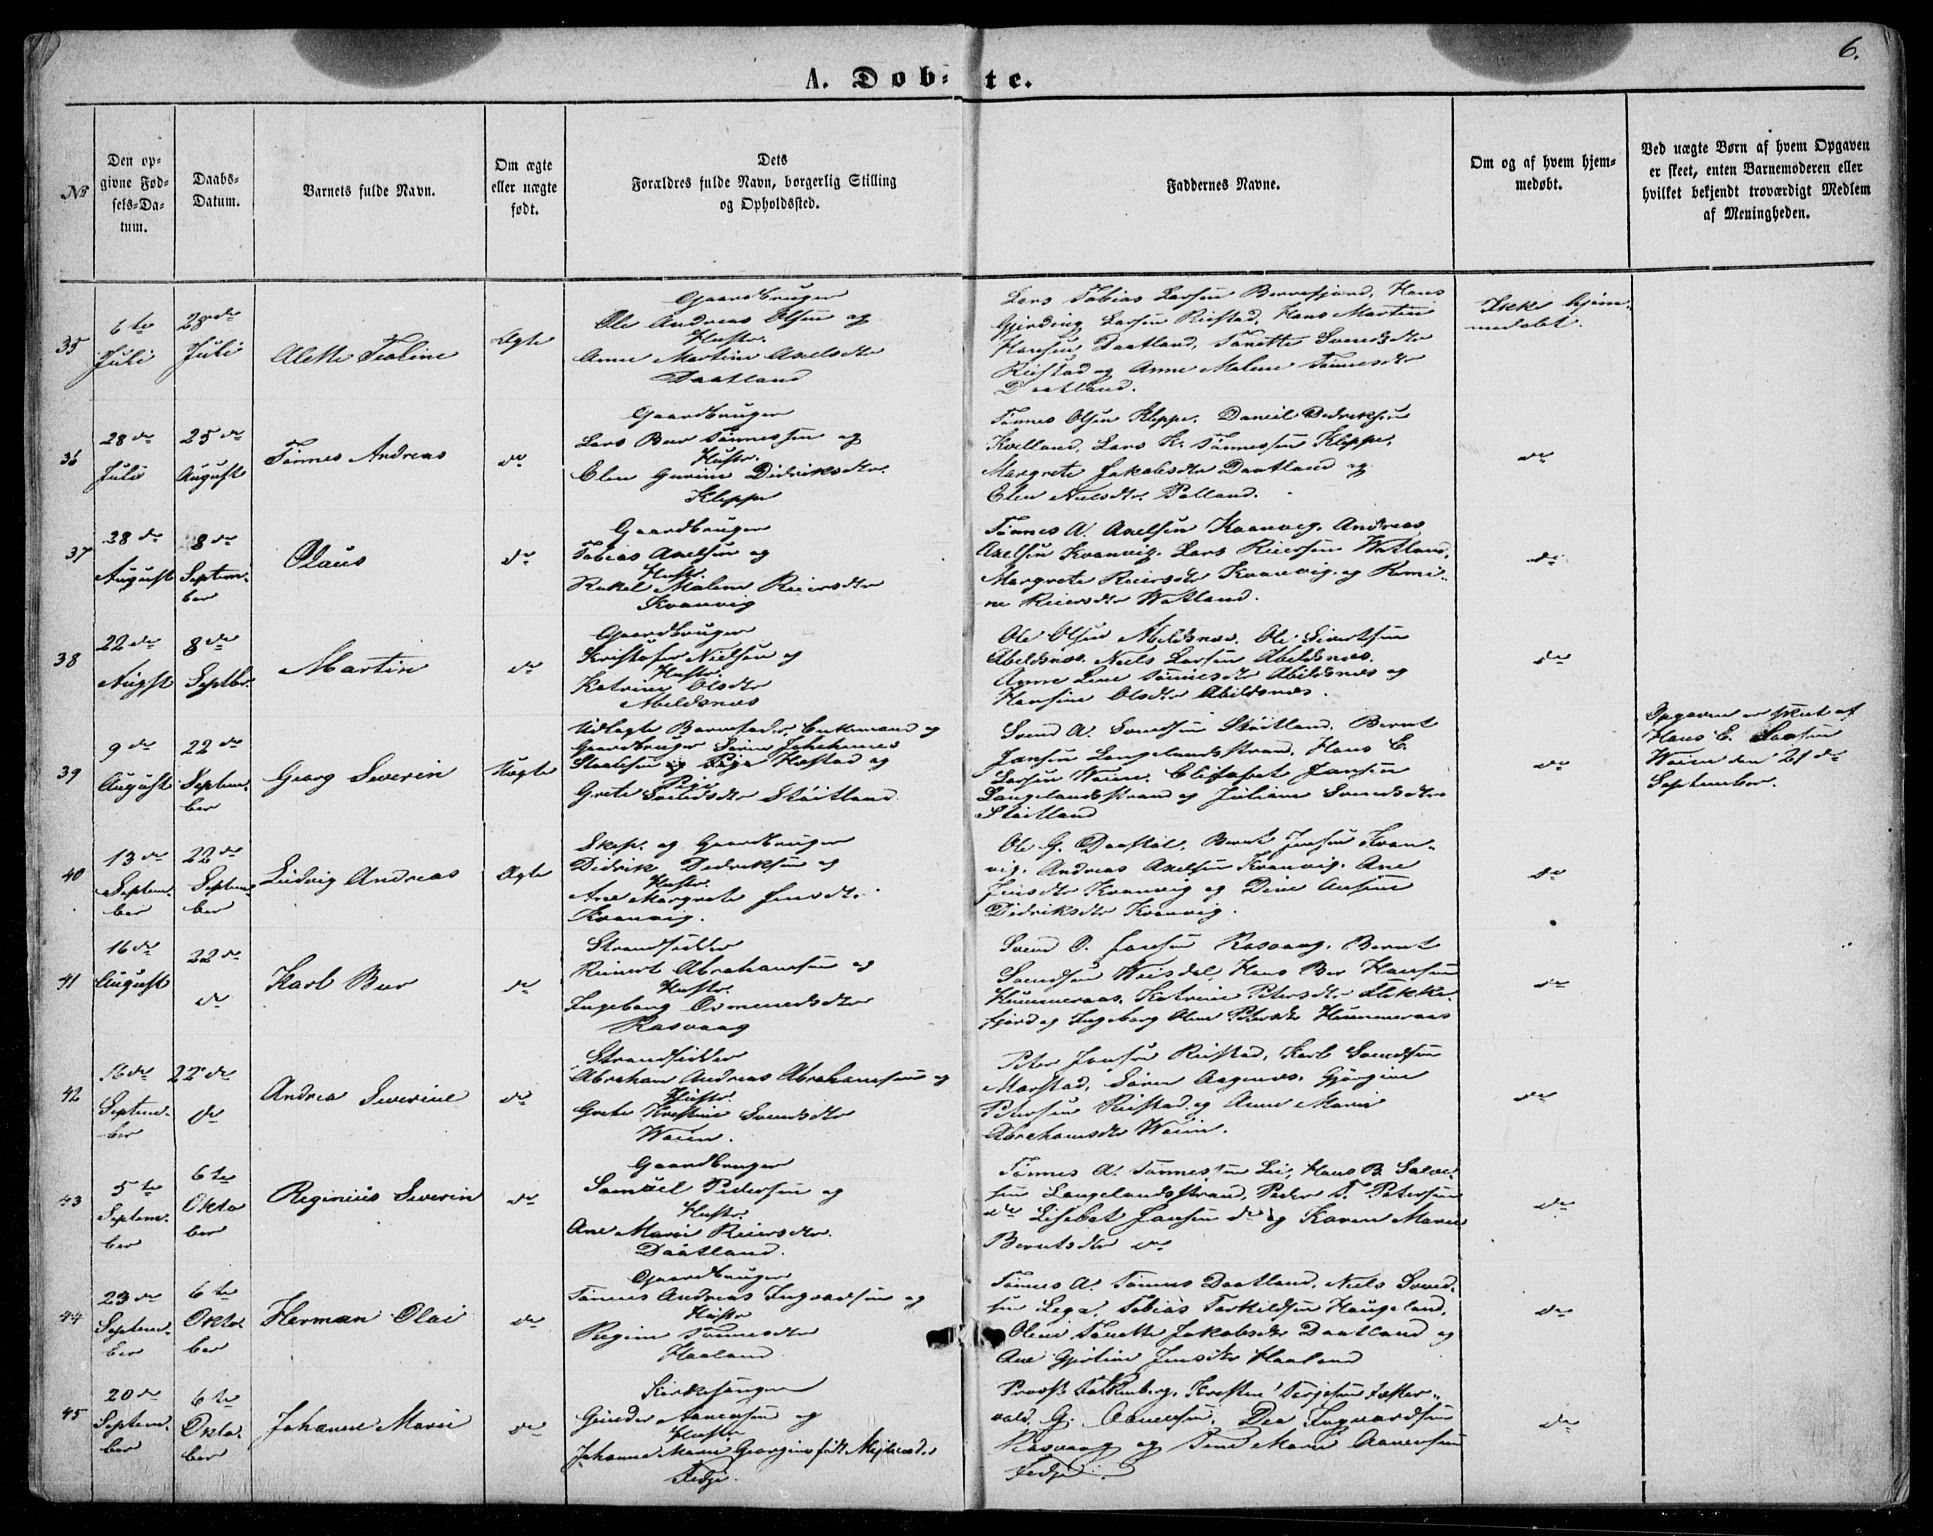 6.
A. Døbte.
No
Den op-
givne Fød-
sels-Da-
tum.
Daabs-
Datum.
Barnets fulde Navn.
Om ægte
eller uægte
født.
Dets
Forældres fulde Navn, borgerlig Stilling
og Opholdssted.
Faddernes Navne.
Om og af hvem hjem-
medøbt.
Ved uægte Børn af hvem Opgaven
er skeet, enten Barnemoderen eller
hvilket bekjendt troværdigt Medlem
af Meningheden.
35
6te
Juli
23de
Juli
Alette Tealine
Ægte
Gaardbruger
Ole Andreas Olsen og
Hustr.
Anne Martine Axelsdtr
Daatland
Lars Tobias Larsen Berrefjord, Hans
Gjerding Larsen Reistad, Hans Martin
Hansen Daatland, Tonette Svendsdtr
Reistad og Anne Malene Tønnesdtr
Daatland.
Ikke hjem-
medøbt.
36
28de
Juli
25de
August
Tønnes Andreas
do
Gaardbruger
Lars Ber Tønnessen og
Hustr.
Elen Gurine Didriksdtr.
Kleppe
Tønnes Olsen Kleppe, Daniel Didriksen
Kvelland, Lars K. Tønnessen Kleppe,
Margrete Jakobsdtr Daatland og
Elen Nielsdtr.
do
37
28de
August
8de
Septem-
ber
Olaus
do
Gaardbruger
Tobias Axelsen og
Hustr.
Rakel Malene Reiersdtr
Kvanvig
Tønnes A. Axelsen Kvanvig, Andreas
Axelsen Kvanvig, Lars Reiersen Watland,
Margrete Reiersdtr Kvanvig og Romi-
ne Reiersdtr Watland.
do
38
22de
Augst
8de
Septbr.
Martin
do
Gaardbruger
Kristofer Nielsen og
Hustr.
Katrine Olsdtr
Abeldsnæs
Ole Olsen Abeldsnæs, Ole Sivertsen
Abeldsnæs, Niels Larsen Abeldsnæs,
Anne Lene Tønnesdtr Abildsnæs og
Hansine Olsdtr Abildsnæs.
do
39
9de
August
22de
Septem-
ber
Georg Severin
Uægte
Udlagte Barnefader, Enkemand og
Gaardbruger Søren Johannes
og Pige
Pige
Grete Svendsdtr Støitland
Svend A. Svendsen Støitland, Bernt
Jansen Langelandsstrand, Hans E.
Larsen Waien, Elisabet Jansen
Langelandsstrand og Juliane Svendsdtr
Støitland
do
Opgaven er skeet af
Hans E. Larsen
Waien den 21de
September.
40
13de
Septem-
ber
22de
Septem-
ber
Ludvig Andreas
Ægte
Skip. og Gaardbruger
Didrik Didriksen og
Hustr.
Ane Margrete Jensdtr.
Kvanvig.
Ole G. Daastøl, Bernt Jensen Kvan-
vig, Andreas Axelsen Kvanvig, Ane
Jensdtr Kvanvig og
Didriksdtr Kvanvig.
do
41
16de
August
22de
do
Karl Ber
do
Strandsidder
Reinert Abrahamsen og
Hustr.
Ingeborg Osmundsdtr
Rasvaag
Svend O. Jansen Rasvaag, Bernt
Svendsen Weisdal, Hans Ber Hansen
Hummeraas, Katrine Petersdtr Flekke-
fjord og Ingeborg Oline Petersdtr Hummeraas
do
42
16de
Septem-
ber
22de
do
Andrea Severine
do
Strandsidder
Abraham Andreas Abrahamsen og
Hustr.
Grete Kristine Svendsdtr
Waien.
Peter Jansen Reistad, Karl Svendsen
Marstad, Søren Aagenæs, Gjørgine
Petersen Reistad og Anne Marie
Abrahamsdtr Waien.
do
43
5te
Septem-
ber
6te
Okto
ber
Reginius Severin
do
Gaardbruger
Samuel Pedersen og
Hustr.
Ane Marie Reiersdtr.
Daatland.
Tønnes A. Tønnessen Lie, Hans B. Salve-
sen Langelandsstrand, Peder T. Petersen
do Lisebet Jansen do og Karen Marie
Berntsdtr do
do
44
23de
Septem-
ber
6te
Okto-
ber
Herman Olai
do
Gaardbruger
Tønnes Andreas Ingvaldsen og
Hustr
Regine Tønnesdtr
Haaland
Tønnes A. Tønnes Daatland, Niels Svend-
sen Lega, Tobias Torkildsen Haugeland,
Oline Tonette Jakobsdtr Daatland og
Ane Gjertine Jensdtr Haaland
do
45
20de
Septem-
ber
6te
Okto-
ber
Johanne Marie
do
Kirkesanger
Gunder Aanensen og
Hustr
Johanne Marie Georgine født
Fedje.
Provst Falkenberg, Kresten Terjesen Fester-
vold, G. Aanensen, Dea Ingvardsen
Rasvaag og Tine Marie Aanensen
Fedje.
do